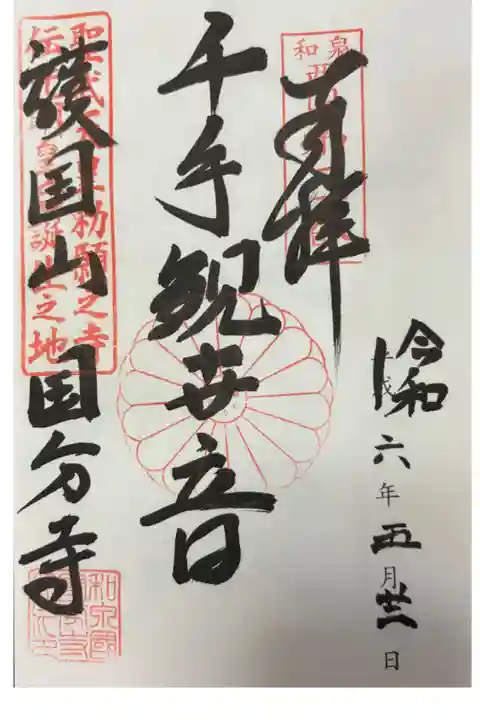 令和六年五月廿一日
奉拝
千手観世音
護国山国分寺
和泉
聖武天皇勅願之寺
誕生之地
和泉國